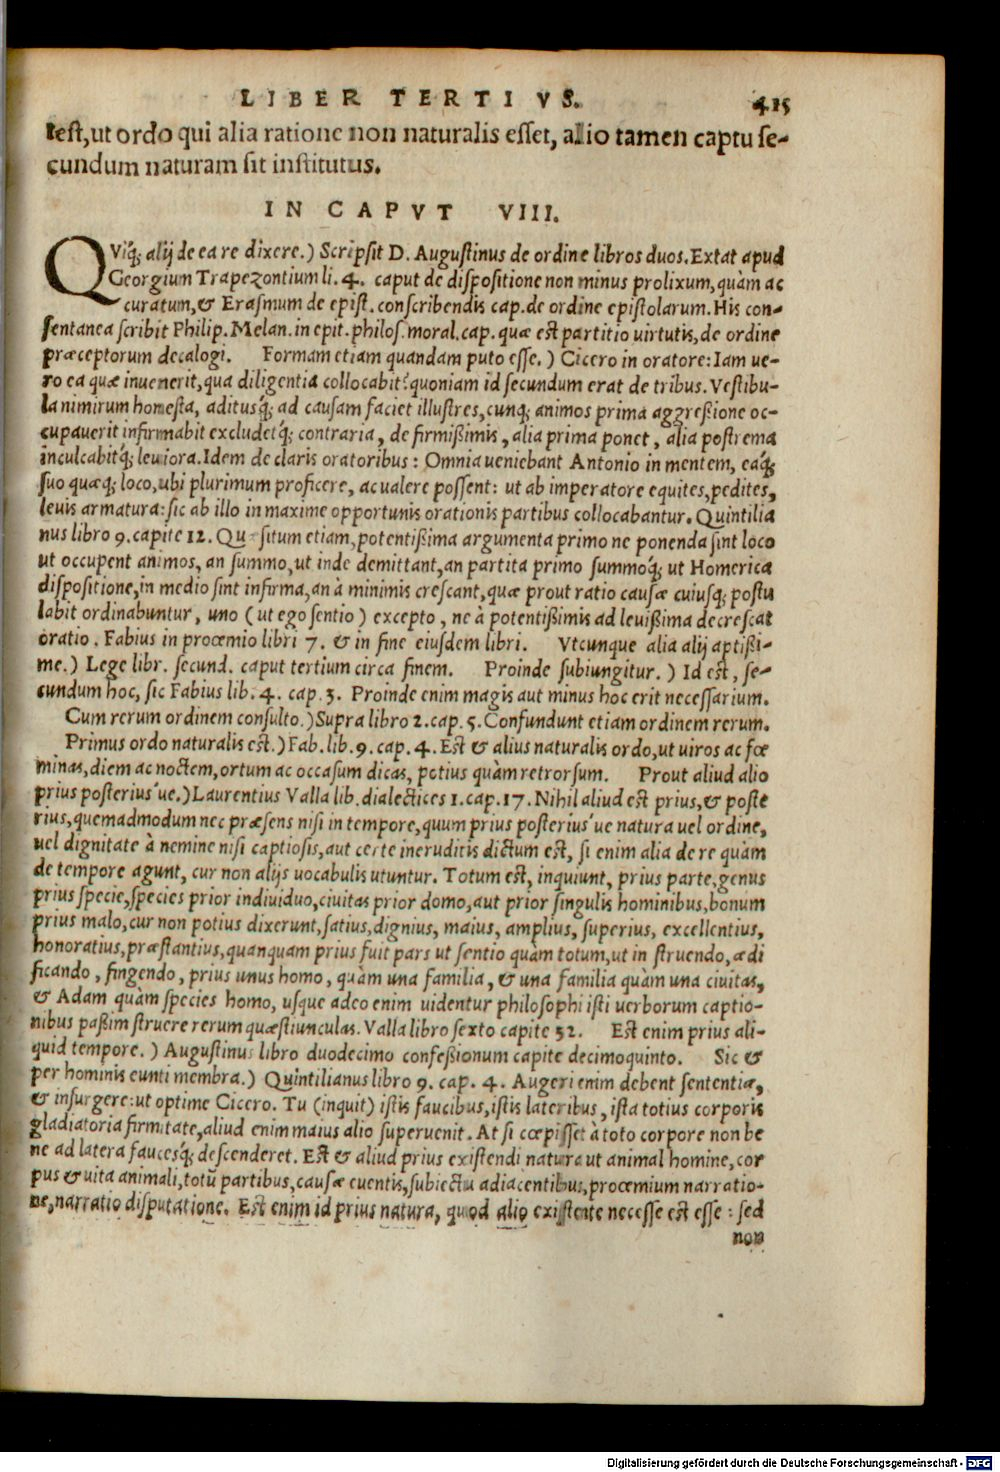 LIBER TERTIVS. 415
test,ut ordo qui alia ratione non naturalis esset, alio tamen captu se-
cundum naturam sit institutus.
IN CAPVT VIII.
QViq́; alij de ea re dixere.) Scripsit D. Augustinus de ordine libros duos.Extat apud
Georgium Trapezontium li. 4. caput de dispositione non minus prolixum,quàm ac
curatum,& Erasmum de epist.conscribendis cap.de ordine epistolarum.His con-
sentanea scribit Philip.Melan.in epit.philos.moral.cap.quæ est partitio uirtutis,de ordine
præceptorum decalogi. Formam etiam quandam puto esse.) Cicero in oratore:Iam ue-
ro ea quæ inuenerit,qua diligentia collocabit?quoniam id secundum erat de tribus.Vestibu-
la nimirum honesta, aditusq́; ad causam faciet illustres,cunq; animos prima aggreßione oc-
cupauerit infirmabit excludetq́; contraria, de firmißimis, alia prima ponet, alia postrema
inculcabitq́; leuiora.Idem de claris oratoribus: Omnia ueniebant Antonio in mentem, eaq́;
suo quæq; loco,ubi plurimum proficere, ac ualere possent: ut ab imperatore equites,pedites,
leuis armatura:sic ab illo in maxime opportunis orationis partibus collocabantur.Quintilia
nus libro 9.capite 12. Quæsitum etiam,potentißima argumenta primo ne ponenda sint loco
ut occupent animos, an summo,ut inde demittant,an partita primo summoq́; ut Homerica
dispositione,in medio sint infirma,an à minimis crescant,quæ prout ratio causæ cuiusq; postu
labit ordinabuntur, uno (ut ego sentio) excepto, ne à potentißimis ad leuißima decrescat
oratio. Fabius in prooemio libri 7. & in fine eiusdem libri. Vtcunque alia alij aptißi-
me.) Lege libr. secund. caput tertium circa finem. Proinde subiungitur.) Id est, se-
cundum hoc, sic Fabius lib. 4. cap. 3. Proinde enim magis aut minus hoc erit necessarium.
Cum rerum ordinem consulto.)Supra libro 2.cap.5.Confundunt etiam ordinem rerum.
Primus ordo naturalis est.)Fab.lib.9.cap.4.Est & alius naturalis ordo,ut uiros ac foe
minas,diem ac noctem,ortum ac occasum dicas, potius quàm retrorsum. Prout aliud alio
prius posterius'ue.)Laurentius Valla lib.dialectices 1.cap.17.Nihil aliud est prius,& poste
rius,quemadmodum nec præsens nisi in tempore,quum prius posterius'ue natura uel ordine,
uel dignitate à nemine nisi captiosis,aut certe ineruditis dictum est, si enim alia de re quàm
de tempore agunt, cur non alijs uocabulis utuntur. Totum est, inquiunt, prius parte,genus
prius specie,species prior indiuiduo,ciuitas prior domo,aut prior singulis hominibus,bonum
prius malo,cur non potius dixerunt,satius,dignius, maius, amplius, superius, excellentius,
honoratius,præstantius,quanquam prius fuit pars ut sentio quàm totum,ut in struendo,ædi
ficando, fingendo, prius unus homo, quàm una familia, & una familia quàm una ciuitas,
& Adam quàm species homo, usque adeo enim uidentur philosophi isti uerborum captio-
nibus paßim struere rerum quæstiunculas.Valla libro sexto capite 52. Est enim prius ali-
quid tempore.) Augustinus libro duodecimo confeßionum capite decimoquinto. Sic &
per hominis eunti membra.) Quintilianus libro 9. cap. 4. Augeri enim debent sententiæ,
& insurgere:ut optime Cicero. Tu (inquit) istis faucibus,istis lateribus, ista totius corporis
gladiatoria firmitate,aliud enim maius alio superuenit. At si coepisset à toto corpore non be
ne ad latera faucesq́; descenderet. Est & aliud prius existendi natura ut animal homine,cor
pus & uita animali,totũ partibus,causæ euentis,subiecta adiacentibus,prooemium narratio-
ne,narratio disputatione. Est enim id prius natura, quod alio existente necesse est esse: sed
non
Digitalisierung gefördert durch die Deutsche Forschungsgemeinschaft - DFG